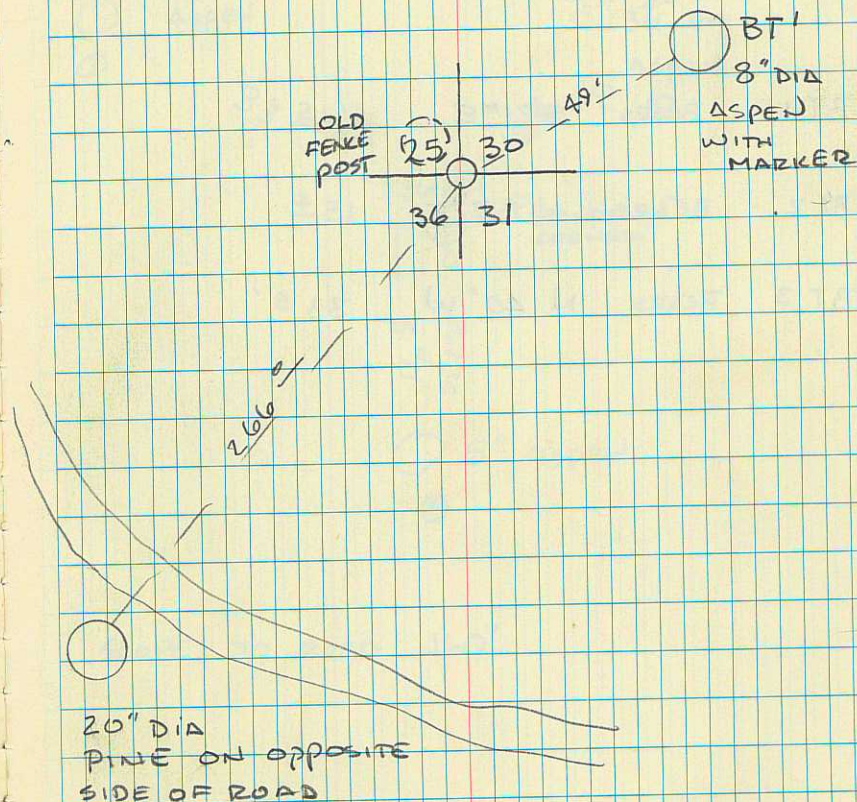 BT 1
8" DIA
ASPEN
WITH
MARKER
49'
OLD
FENCE
POST
25 30
36 31
266'
20" DIA
PINE ON OPPOSITE
SIDE OF ROAD